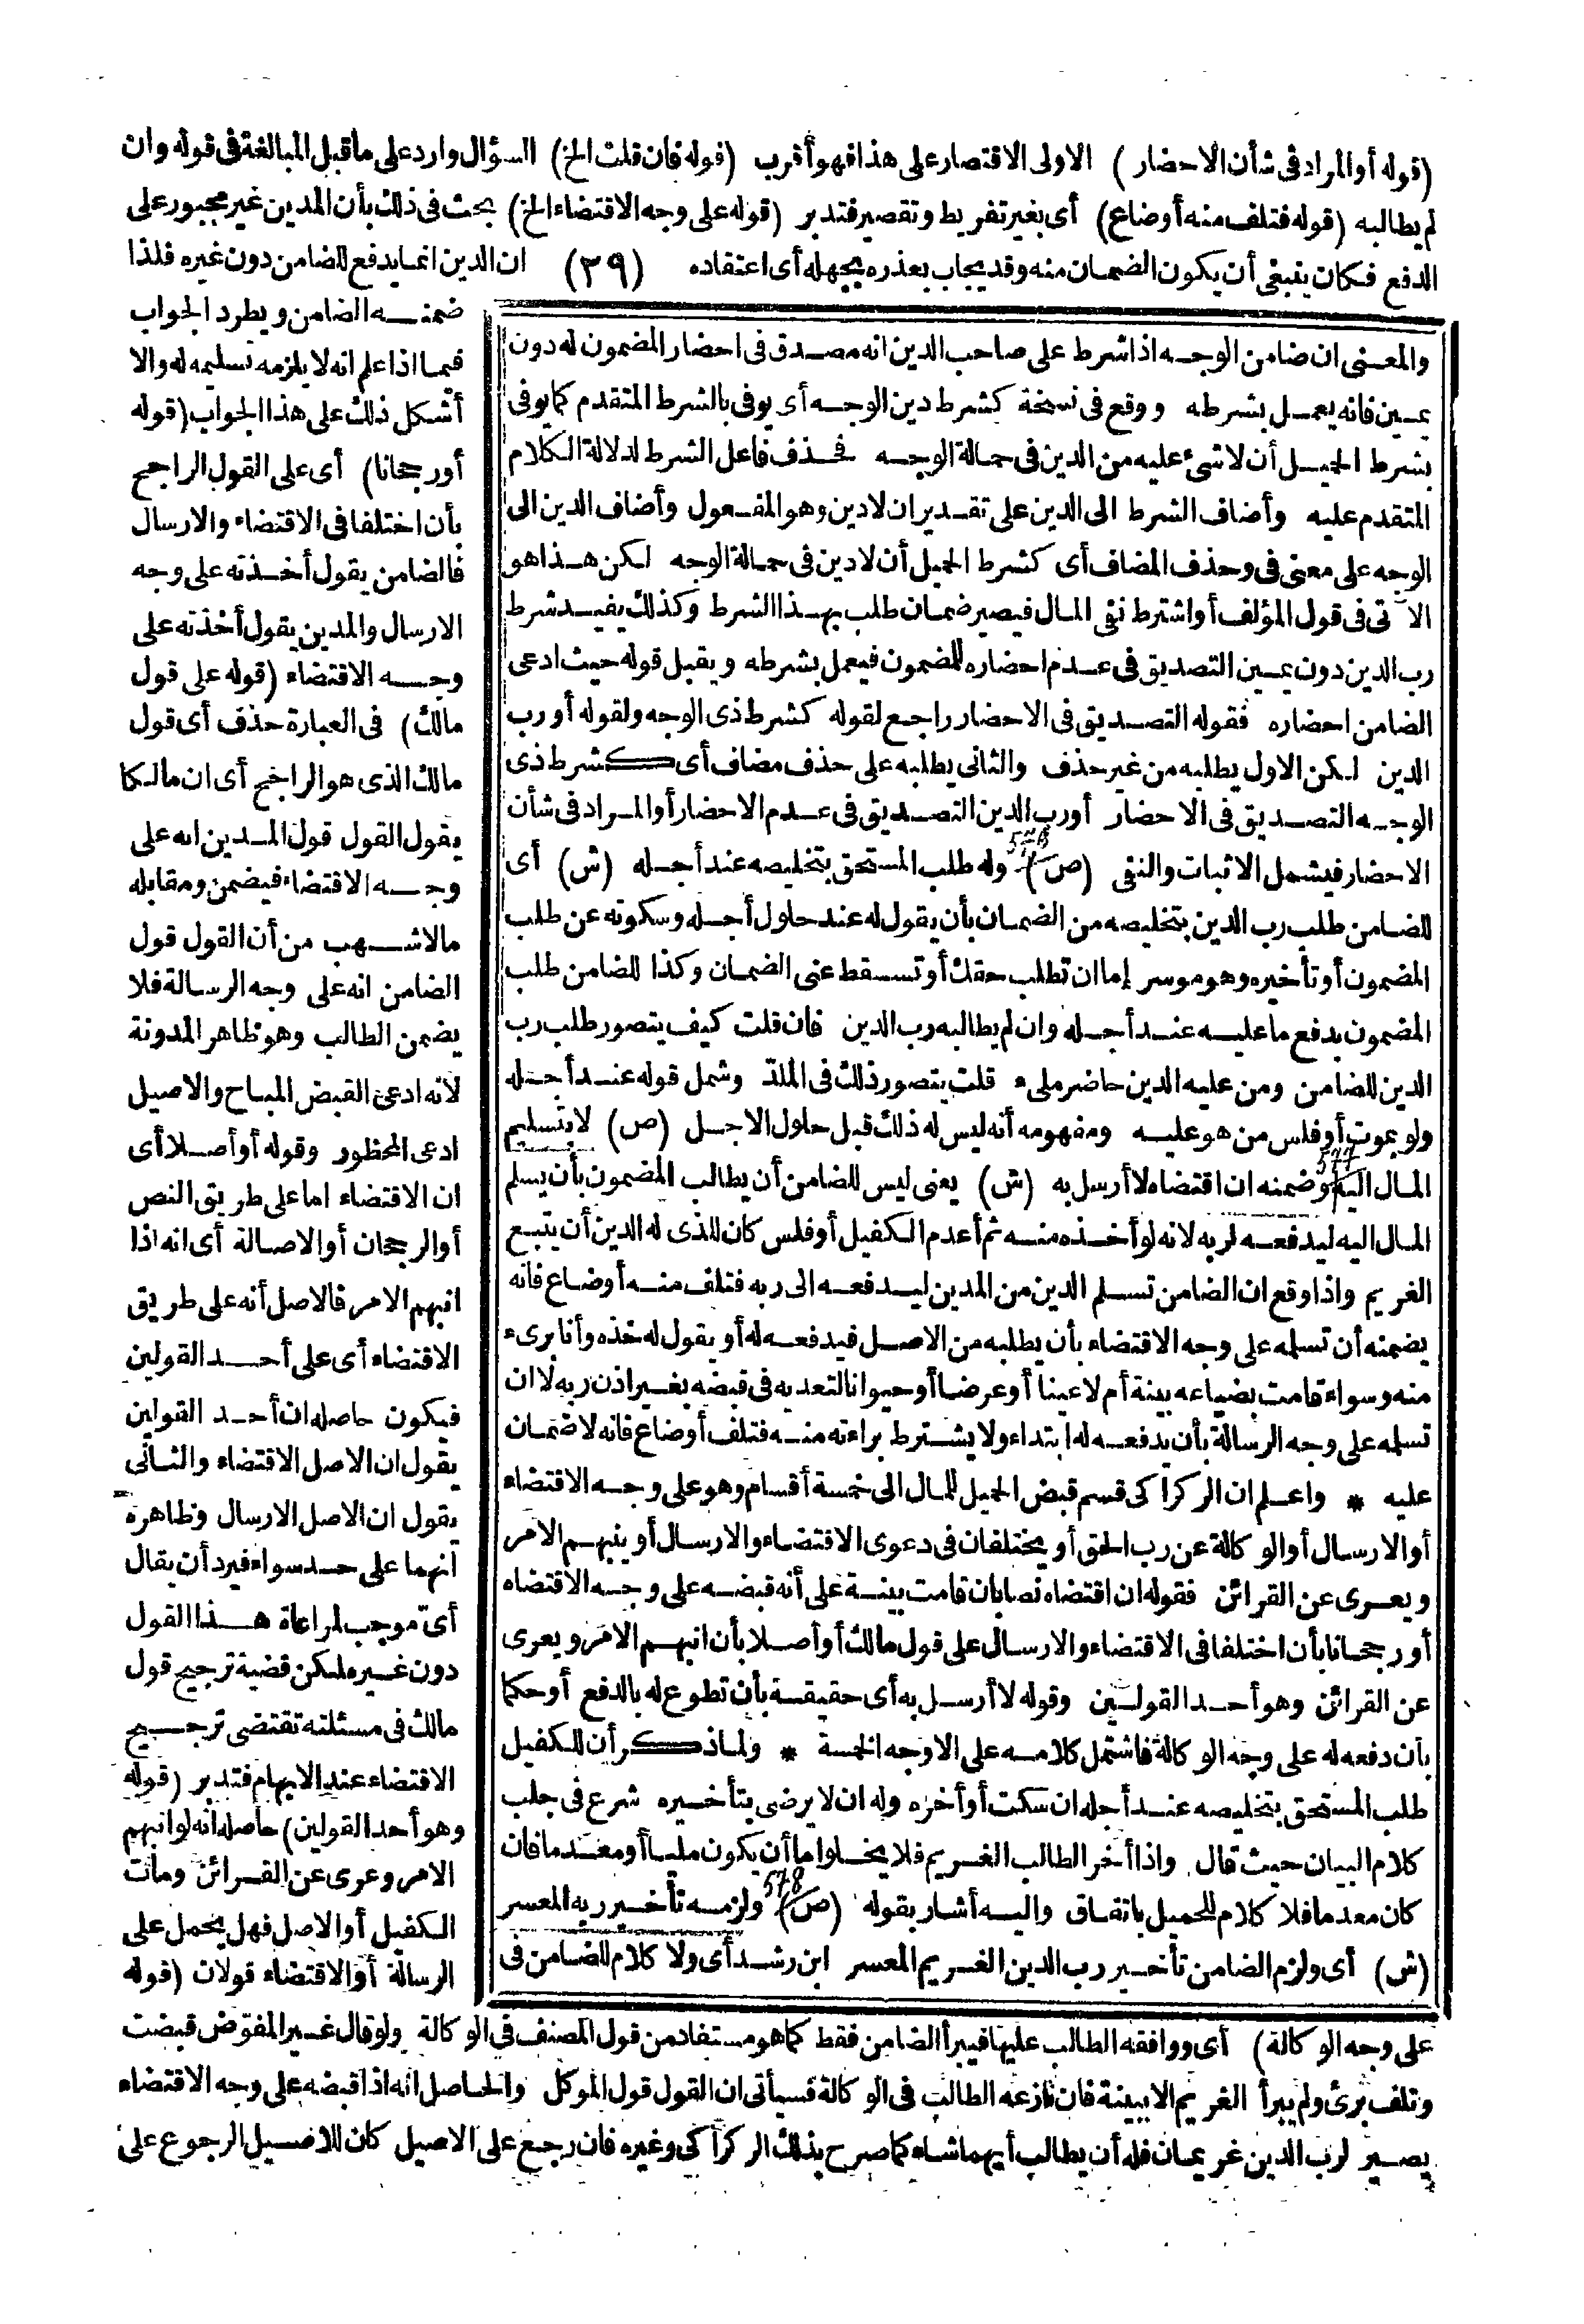 (قوله أو المراد في شأن الاحضار) الاولى الاقتصار على هذا فهو أقرب (قوله فان قلت الخ) السؤال وارد على ما قبل المبالغة في قوله وان
لم يطالبه (قوله فتلف منه أو ضاع) أى بغير تفريط وتقصير فتدبر (قوله على وجه الاقتضاء الخ) بحث في ذلك بأن المدين غير مجبور على
الدفع فكان ينبغي أن يكون الضمان منه وقد يجاب بعذره بجهله أى اعتقاده (٣٩) ان الدين انما يدفع للضامن دون غيره فلذا
ضمنه الضامن ويطرد الجواب
فيما اذا علم انه لا يلزمه تسليمه له والا
أشكل ذلك على هذا الجواب (قوله
أو رجحانا) أى على القول الراجح
بأن اختلفا في الاقتضاء والارسال
فالضامن يقول أخذته على وجه
الارسال والمدين يقول أخذته على
وجه الاقتضاء (قوله على قول
مالك) في العبارة حذف أى قول
مالك الذى هو الراجح أى ان مالكا
يقول القول قول المدين انه على
وجه الاقتضاء فيضمن ومقابله
ما لاشهب من أن القول قول
الضامن انه على وجه الرسالة فلا
يضمن الطالب وهو ظاهر المدونة
لانه ادعى القبض المباح والاصيل
ادعى المحظور وقوله أو أصلا أى
ان الاقتضاء اما على طريق النص
أو الرجحان أو الاصالة أى انه اذا
انبهم الامر فالاصل أنه على طريق
الاقتضاء أى على أحد القولين
فيكون حاصله ان أحد القولين
يقول ان الاصل الاقتضاء والثانى
يقول ان الاصل الارسال وظاهره
أنهما على حد سواء فيرد أن يقال
أىّ موجب لمراعاة هذا القول
دون غيره لكن قضية ترجيح قول
مالك في مسئلته تقتضى ترجيح
الاقتضاء عند الابهام فتدبر (قوله
وهو أحد القولين) حاصله انه لو انبهم
الامر وعرى عن القرائن ومات
الكفيل أو الاصل فهل يحمل على
الرسالة أو الاقتضاء قولان (قوله
والمعنى ان ضامن الوجه اذا شرط على صاحب الدين انه مصدق في احضار المضمون له دون
يمين فانه يعمل بشرطه ووقع في نسخة كشرط دين الوجه أى يوفى بالشرط المتقدم كما يوفى
بشرط الحميل أن لا شئ عليه من الدين في حمالة الوجه فحذف فاعل الشرط لدلالة الكلام
المتقدم عليه وأضاف الشرط الى الدين على تقدير ان لا دين وهو المفعول وأضاف الدين الى
الوجه على معنى في وحذف المضاف أى كشرط الحميل أن لا دين في حمالة الوجه لكن هذا هو
الآتى في قول المؤلف أو اشترط نفى المال فيصير ضمان طلب بهذا الشرط وكذلك يفيد شرط
رب الدين دون يمين التصديق في عدم احضاره للمضمون فيعمل بشرطه ويقبل قوله حيث ادعى
الضامن احضاره فقوله التصديق في الاحضار راجع لقوله كشرط ذى الوجه ولقوله أو رب
الدين لكن الاول يطلبه من غير حذف والثانى يطلبه على حذف مضاف أى كشرط ذى
الوجه التصديق في الاحضار أو رب الدين التصديق في عدم الاحضار أو المراد في شأن
الاحضار فيشمل الاثبات والنفى (ص) وله طلب المستحق بتخليصه عند أجله (ش) أى
للضامن طلب رب الدين بتخليصه من الضمان بأن يقول له عند حلول أجله وسكوته عن طلب
المضمون أو تأخيره وهو موسر إما ان تطلب حقك أو تسقط عنى الضمان وكذا للضامن طلب
المضمون بدفع ما عليه عند أجله وان لم يطالبه رب الدين فان قلت كيف يتصور طلب رب
الدين للضامن ومن عليه الدين حاضر ملىء قلت يتصور ذلك في الملدّ وشمل قوله عند أجله
ولو بموت أو فلس من هو عليه ومفهومه أنه ليس له ذلك قبل حلول الاجل (ص) لا بتسليم
المال اليه 577 وضمنه ان اقتضاه لا أرسل به (ش) يعنى ليس للضامن أن يطالب المضمون بأن يسلم
المال اليه ليدفعه لربه لانه لو أخذه منه ثم أعدم الكفيل أو فلس كان للذى له الدين أن يتبع
الغريم واذا وقع ان الضامن تسلم الدين من المدين ليدفعه الى ربه فتلف منه أو ضاع فانه
يضمنه أن تسلمه على وجه الاقتضاء بأن يطلبه من الاصل فيدفعه له أو يقول له خذه وأنا برىء
منه وسواء قامت بضياعه بينة أم لا عينا أو عرضا أو حيوانا لتعديه في قبضه بغير اذن ربه لا ان
تسلمه على وجه الرسالة بأن يدفعه له ابتداء ولا يشترط براءته منه فتلف أو ضاع فانه لا ضمان
عليه * واعلم ان الركراكى قسم قبض الحميل للمال الى خمسة أقسام وهو على وجه الاقتضاء
أو الارسال أو الوكالة عن رب الحق أو يختلفان في دعوى الاقتضاء والارسال أو ينبهم الامر
ويعرى عن القرائن فقوله ان اقتضاه نصا بان قامت بينة على أنه قبضه على وجه الاقتضاء
أو رجحانا بأن اختلفا في الاقتضاء والارسال على قول مالك أو أصلا بأن انبهم الامر ويعرى
عن القرائن وهو أحد القولين وقوله لا أرسل به أى حقيقة بأن تطوع له بالدفع أو حكما
بأن دفعه له على وجه الوكالة فاشتمل كلامه على الاوجه الخمسة * ولما ذكر أن للكفيل
طلب المستحق بتخليصه عند أجله ان سكت أو أخره وله ان لا يرضى بتأخيره شرع في جلب
كلام البيان حيث قال واذا أخر الطالب الغريم فلا يخلو اما أن يكون مليا أو معدما فان
كان معدما فلا كلام للحميل باتفاق واليه أشار بقوله (ص) 578 ولزمه تأخير ربه المعسر
(ش) أى ولزم الضامن تأخير رب الدين الغريم المعسر ابن رشد أى ولا كلام للضامن في
على وجه الوكالة) أى ووافقه الطالب عليها فيبرأ الضامن فقط كما هو مستفاد من قول المصنف في الوكالة ولو قال غير المفوّض قبضت
وتلف برئ ولم يبرأ الغريم الا ببينة فان نازعه الطالب في الوكالة فسيأتى ان القول قول الموكل والحاصل انه اذا قبضه على وجه الاقتضاء
يصير لرب الدين غريمان فله أن يطالب أيهما شاء كما صرح بذلك الركراكى وغيره فان رجع على الاصيل كان للاصيل الرجوع على